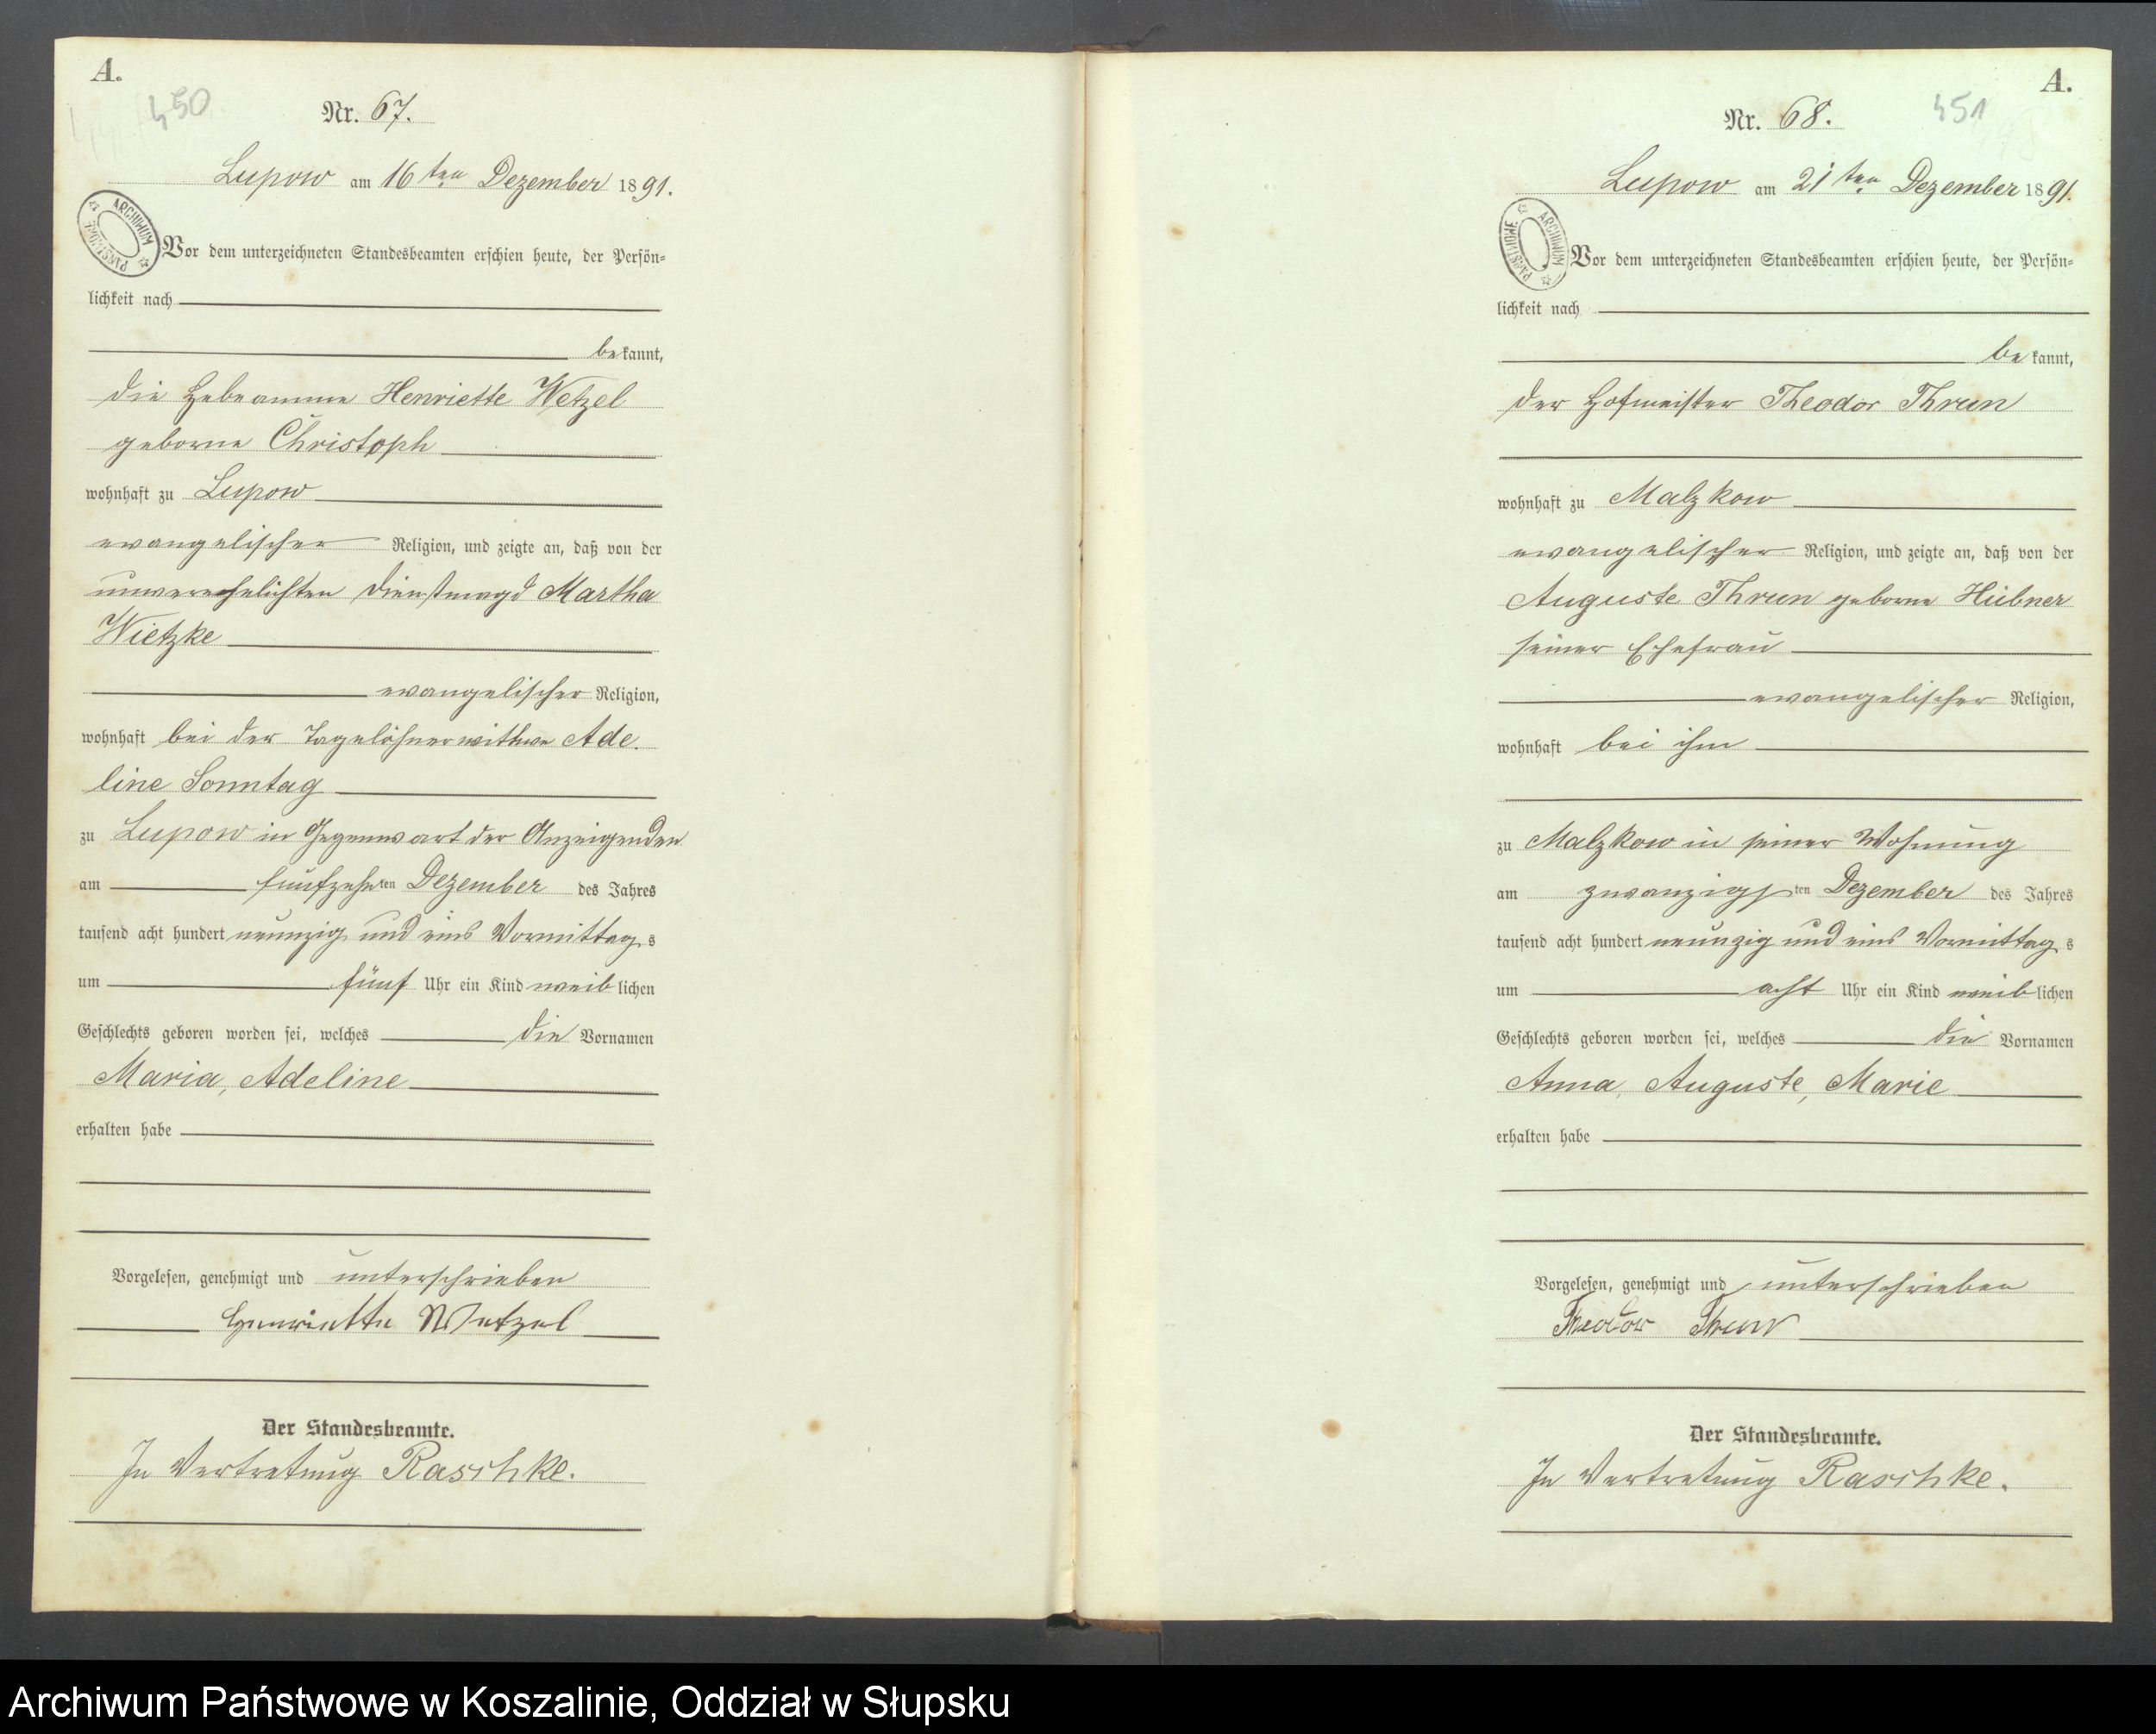 A.
450
Nr. 67.
Lupow am 16ten Dezember 1891.
ARCHIWUM PAŃSTWOWE
Vor dem unterzeichneten Standesbeamten erschien heute, der Persön-
lichkeit nach
bekannt,
die Hebeamme Henriette Wetzel
geborne Christoph
wohnhaft zu Lupow
evangelischer Religion, und zeigte an, daß von der
unverehelichten Dienstmagd Martha
Wietzke
evangelischer Religion,
wohnhaft bei der Tagelöhnerwittwe Ade-
line Sonntag
zu Lupow in Gegenwart der Anzeigenden
am fünfzehnten Dezember des Jahres
tausend acht hundert neunzig und eins Vormittags
um fünf Uhr ein Kind weiblichen
Geschlechts geboren worden sei, welches die Vornamen
Maria, Adeline
erhalten habe
Vorgelesen, genehmigt und unterschrieben
Henriette Wetzel
Der Standesbeamte.
In Vertretung Raschke.
A.
451
Nr. 68.
Lupow am 21ten Dezember 1891.
ARCHIWUM PAŃSTWOWE
Vor dem unterzeichneten Standesbeamten erschien heute, der Persön-
lichkeit nach
bekannt,
der Hofmeister Theodor Thrun
wohnhaft zu Malzkow
evangelischer Religion, und zeigte an, daß von der
Auguste Thrun geborne Hübner
seiner Ehefrau
evangelischer Religion,
wohnhaft bei ihm
zu Malzkow in seiner Wohnung
am zwanzigsten Dezember des Jahres
tausend acht hundert neunzig und eins Vormittags
um acht Uhr ein Kind weiblichen
Geschlechts geboren worden sei, welches die Vornamen
Anna, Auguste, Marie
erhalten habe
Vorgelesen, genehmigt und unterschrieben
Theodor Thrun
Der Standesbeamte.
In Vertretung Raschke.
Archiwum Państwowe w Koszalinie, Oddział w Słupsku